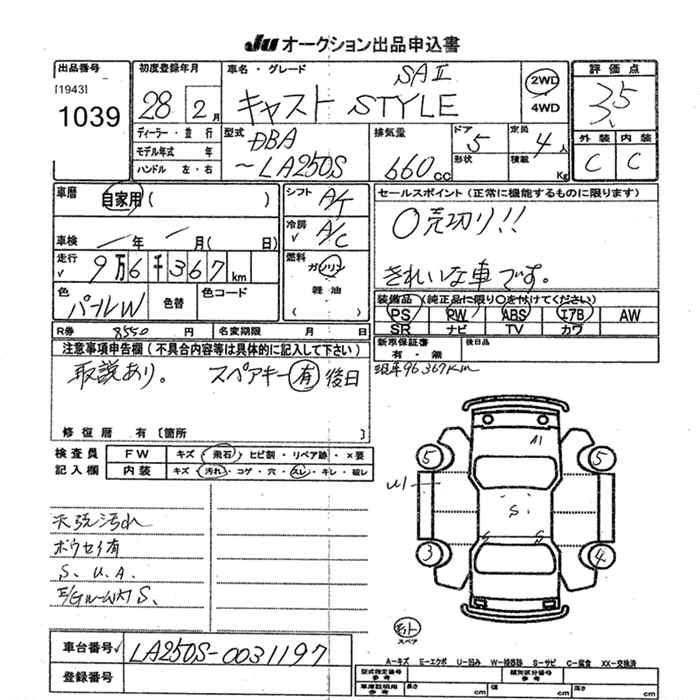 JU オークション出品申込書
出品番号 初度登録年月 車名・グレード SAⅡ 2WD 評価点
[1943] 1039 28 2月 キャスト STYLE 4WD 3.5
ディーラー・並行 型式 DBA 排気量 ドア 5 定員 4人 外装 内装
モデル年式 年 ~LA250S 660cc 形状 積載 Kg C C
ハンドル 左・右
車歴 自家用( ) シフト A/T セールスポイント(正常に機能するものに限ります)
車検 年 月( 日) 冷房 A/C ○売切り!!
走行 9万6千367km 燃料 ガソリン きれいな車です。
色 パールW 色替 色コード 軽油 ( ) 装備品(純正品に限り○を付けてください)
PS PW ABS エアB AW
R券 8550円 名変期限 月 日 SR ナビ TV カワ
注意事項申告欄(不具合内容等は具体的に記入して下さい) 新車保証書 有・無 後日品
取説あり。 スペアキー有後日 現車96367Km
修復歴 有[箇所 ]
検査員 FW キズ・飛石・ヒビ割・リペア跡・×要
記入欄 内装 キズ・汚れ・コゲ・穴・スレ・キレ・破レ
A1
5 5
U1
S
S S
3 4
天張汚れ
ボウセイ有
S、U、A、
S、
スペア
車台番号 LA250S-0031197
A-キズ E-エクボ U-凹み W-補修跡 S-サビ C-腐食 XX-交換済
登録番号 型式指定番号 参考 類別区分番号 参考
車庫証明用 参考 長さ cm 幅 cm 高さ cm